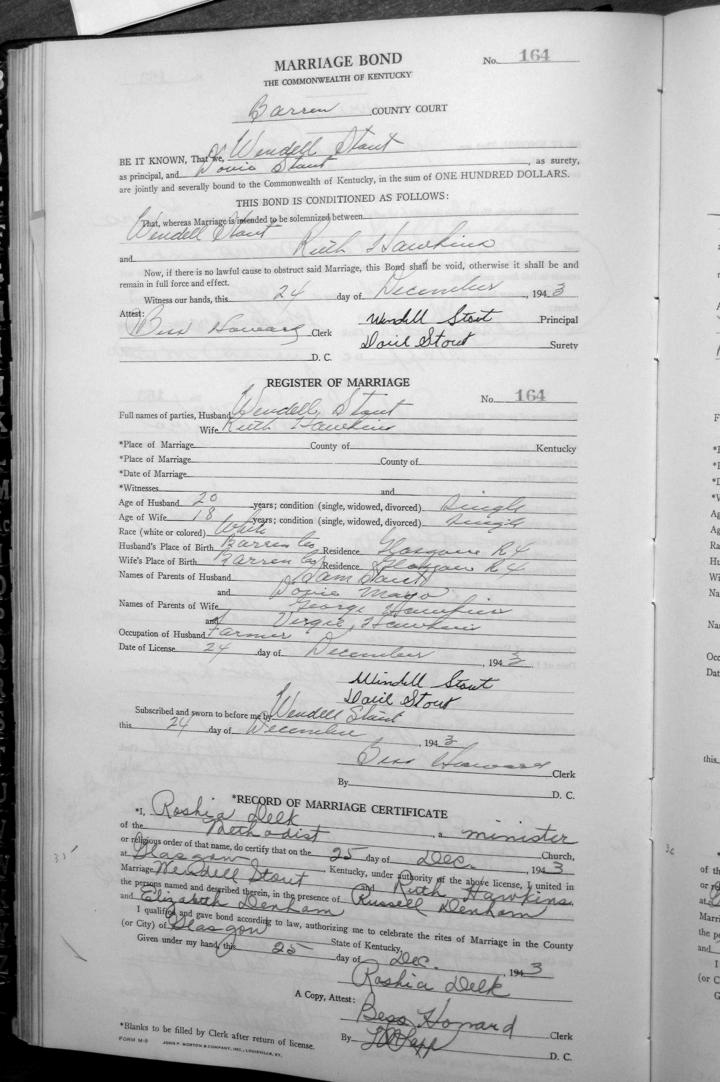 MARRIAGE BOND No. 164
THE COMMONWEALTH OF KENTUCKY
Barren COUNTY COURT
BE IT KNOWN, That we, Wendell Stout
as principal, and Dovie Stout, as surety,
are jointly and severally bound to the Commonwealth of Kentucky, in the sum of ONE HUNDRED DOLLARS.
THIS BOND IS CONDITIONED AS FOLLOWS:
That, whereas Marriage is intended to be solemnized between
Wendell Stout
and Ruth Hawkins
Now, if there is no lawful cause to obstruct said Marriage, this Bond shall be void, otherwise it shall be and
remain in full force and effect.
Witness our hands, this 24 day of December, 1943
Attest: Wendell Stout Principal
Bess Howard Clerk
Dovil Stout Surety
D. C.
REGISTER OF MARRIAGE
No. 164
Full names of parties, Husband Wendell Stout
Wife Ruth Hawkins
*Place of Marriage County of Kentucky
*Place of Marriage County of
*Date of Marriage
*Witnesses and
Age of Husband 20 years; condition (single, widowed, divorced) Single
Age of Wife 18 years; condition (single, widowed, divorced) Single
Race (white or colored) White
Husband's Place of Birth Barren Co Residence Glasgow R4
Wife's Place of Birth Barren Co Residence Glasgow R4
Names of Parents of Husband Sam Stout
and Dovie Mayo
Names of Parents of Wife George Hawkins
and Virgie Hawkins
Occupation of Husband Farmer
Date of License 24 day of December, 1943
Windell Stout
Dovil Stout
Subscribed and sworn to before me by Wendell Stout
this 24 day of December, 1943
Bess Howard Clerk
By D. C.
*RECORD OF MARRIAGE CERTIFICATE
*I, Roshia Delk, a minister
of the Methodist Church,
or religious order of that name, do certify that on the 25 day of Dec., 1943
at Glasgow, Kentucky, under authority of the above license, I united in
Marriage Wendell Stout and Ruth Hawkins,
the persons named and described therein, in the presence of Russell Denham
and Elizabeth Denham
I qualified and gave bond according to law, authorizing me to celebrate the rites of Marriage in the County
(or City) of Glasgow State of Kentucky,
Given under my hand, this 25 day of Dec. 1943
Roshia Delk
A Copy, Attest: Bess Howard Clerk
By D. C.
*Blanks to be filled by Clerk after return of license.
FORM M-8 JOHN P. MORTON & COMPANY, INC., LOUISVILLE, KY.